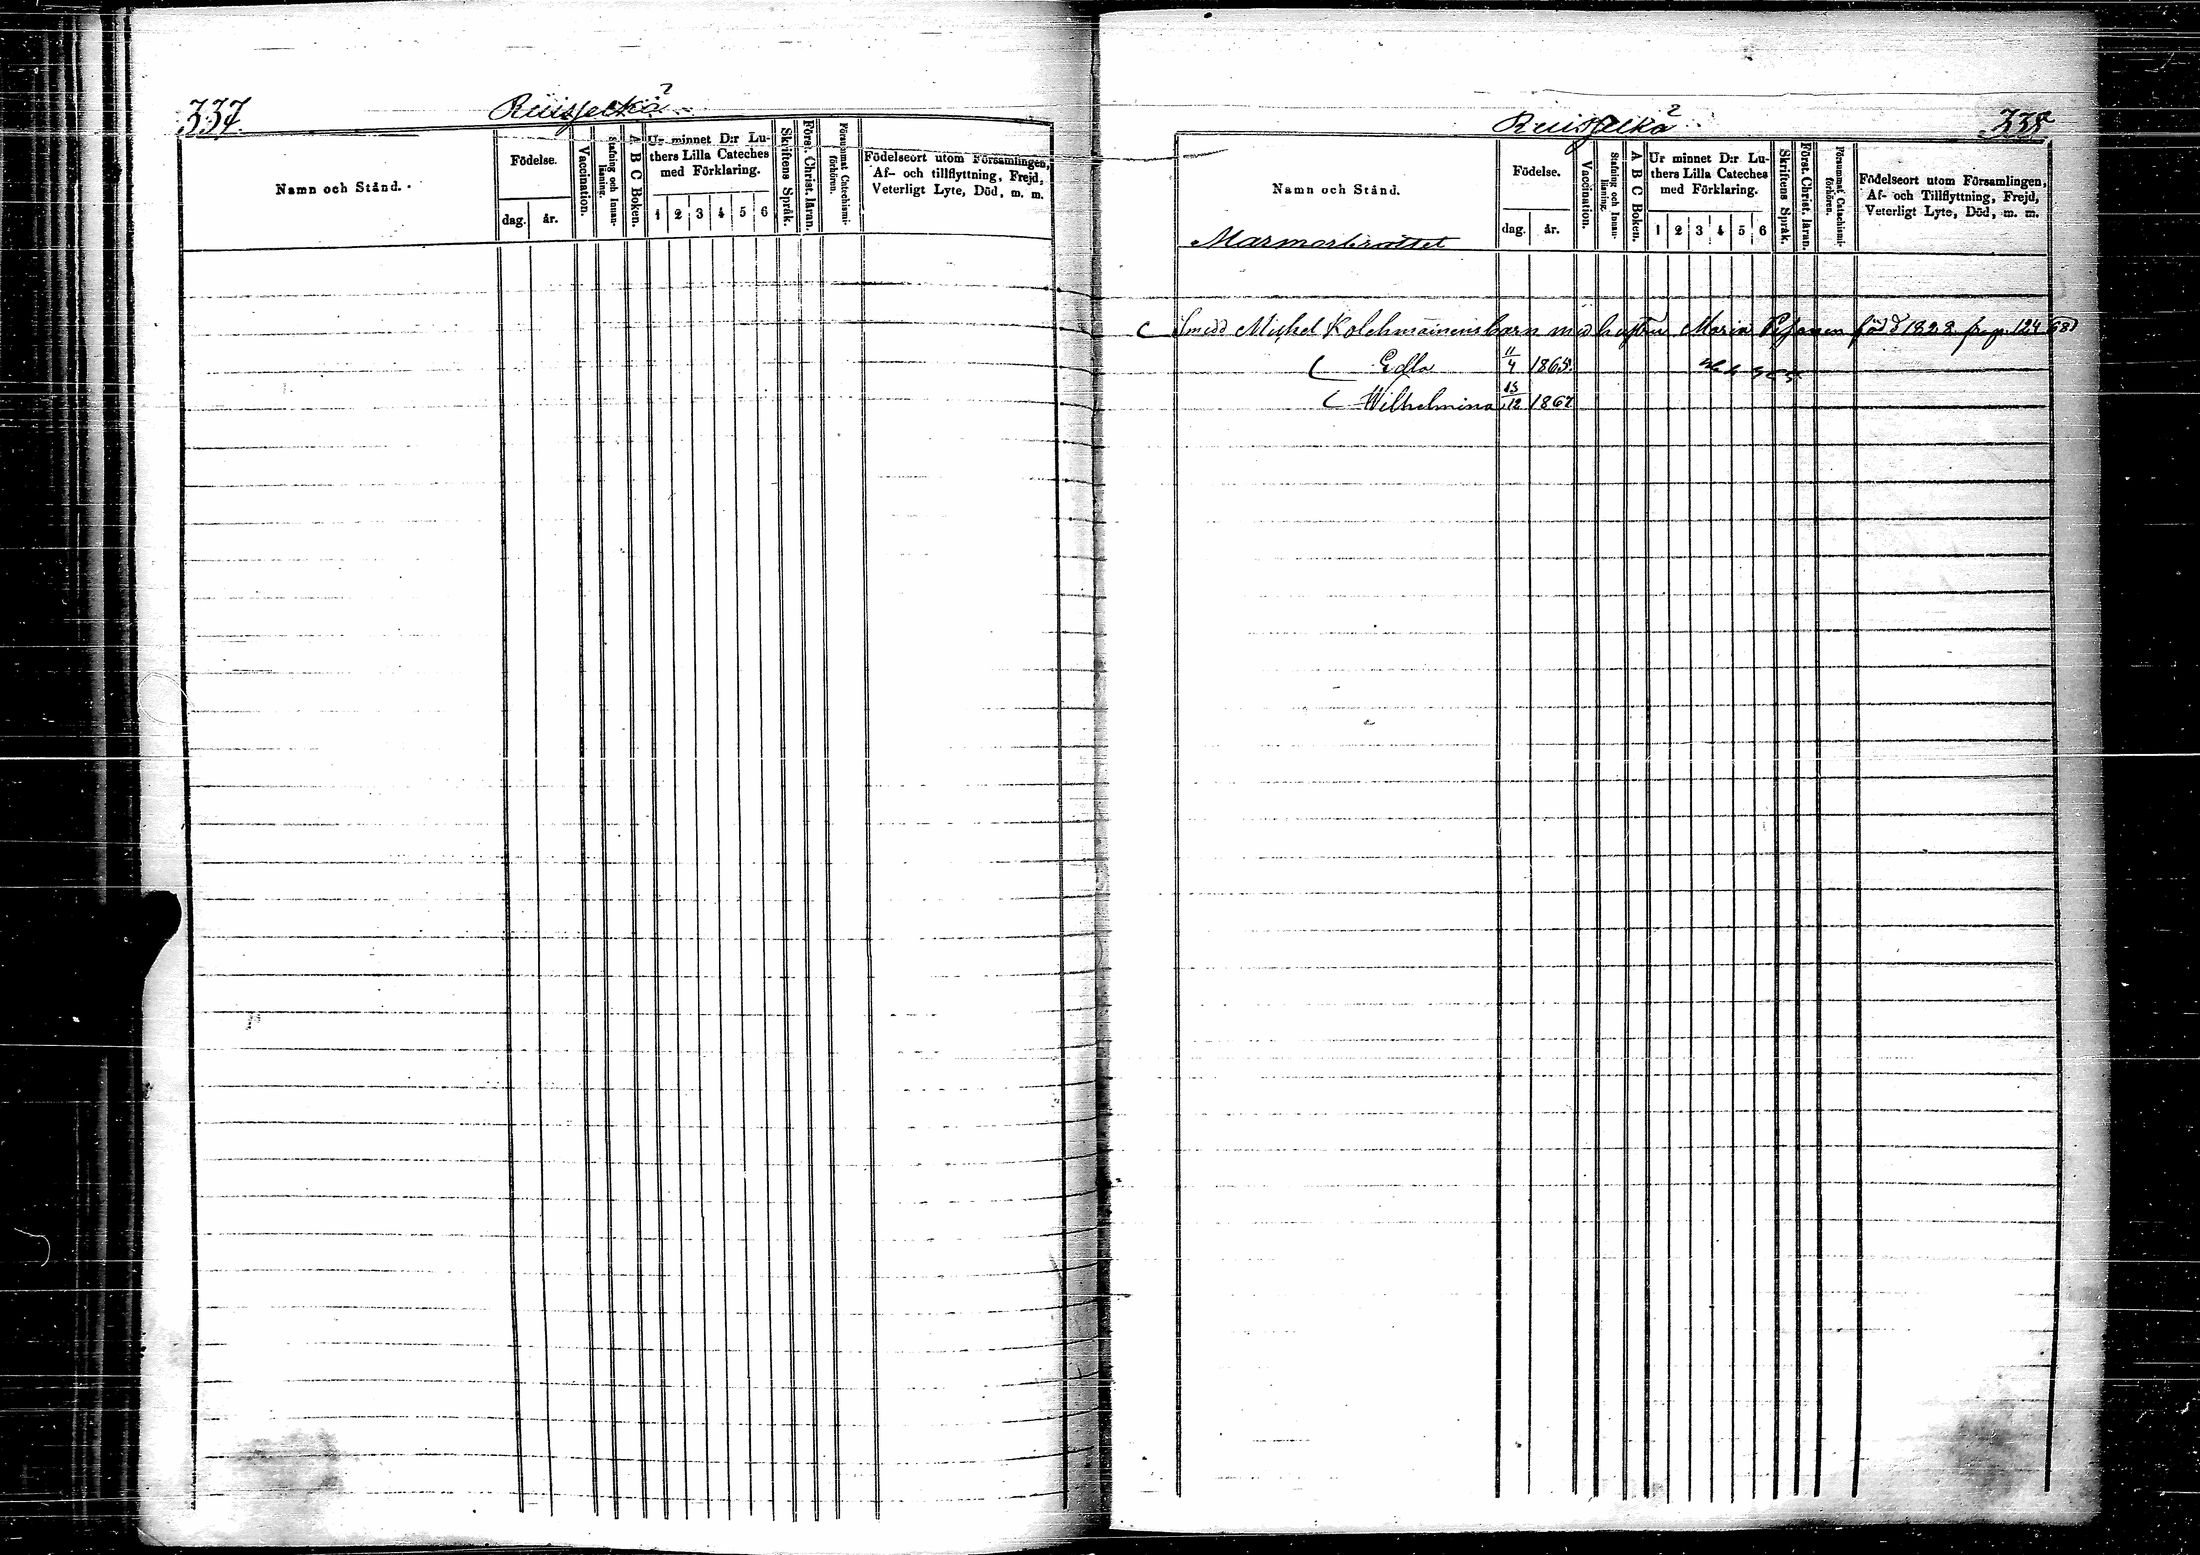 337.
Ruisselkä 2
Namn och Stånd.
Födelse.
dag. år.
Vaccination.
Stafning och Innan-
läsning.
A B C Boken.
Ur minnet D:r Lu-
thers Lilla Cateches
med Förklaring.
1 2 3 4 5 6
Skriftens Språk.
Först. Christ. läran.
Försummat Catechismi-
förhören.
Födelseort utom Församlingen,
Af- och tillflyttning, Frejd,
Veterligt Lyte, Död, m. m.
Ruisselkä 2
338
Namn och Stånd.
Marmorbrottet
Födelse.
dag. år.
Vaccination.
Stafning och Innan-
läsning.
A B C Boken.
Ur minnet D:r Lu-
thers Lilla Cateches
med Förklaring.
1 2 3 4 5 6
Skriftens Språk.
Först. Christ. läran.
Försummat Catechismi-
förhören.
Födelseort utom Församlingen,
Af- och Tillflyttning, Frejd,
Veterligt Lyte, Död, m. m.
Smedd Michel Kolehmainens barn med hustru Maria född 1828 fr. p. 124 68)
Edla 11/4 1865.
Wilhelmina 15/12 1867